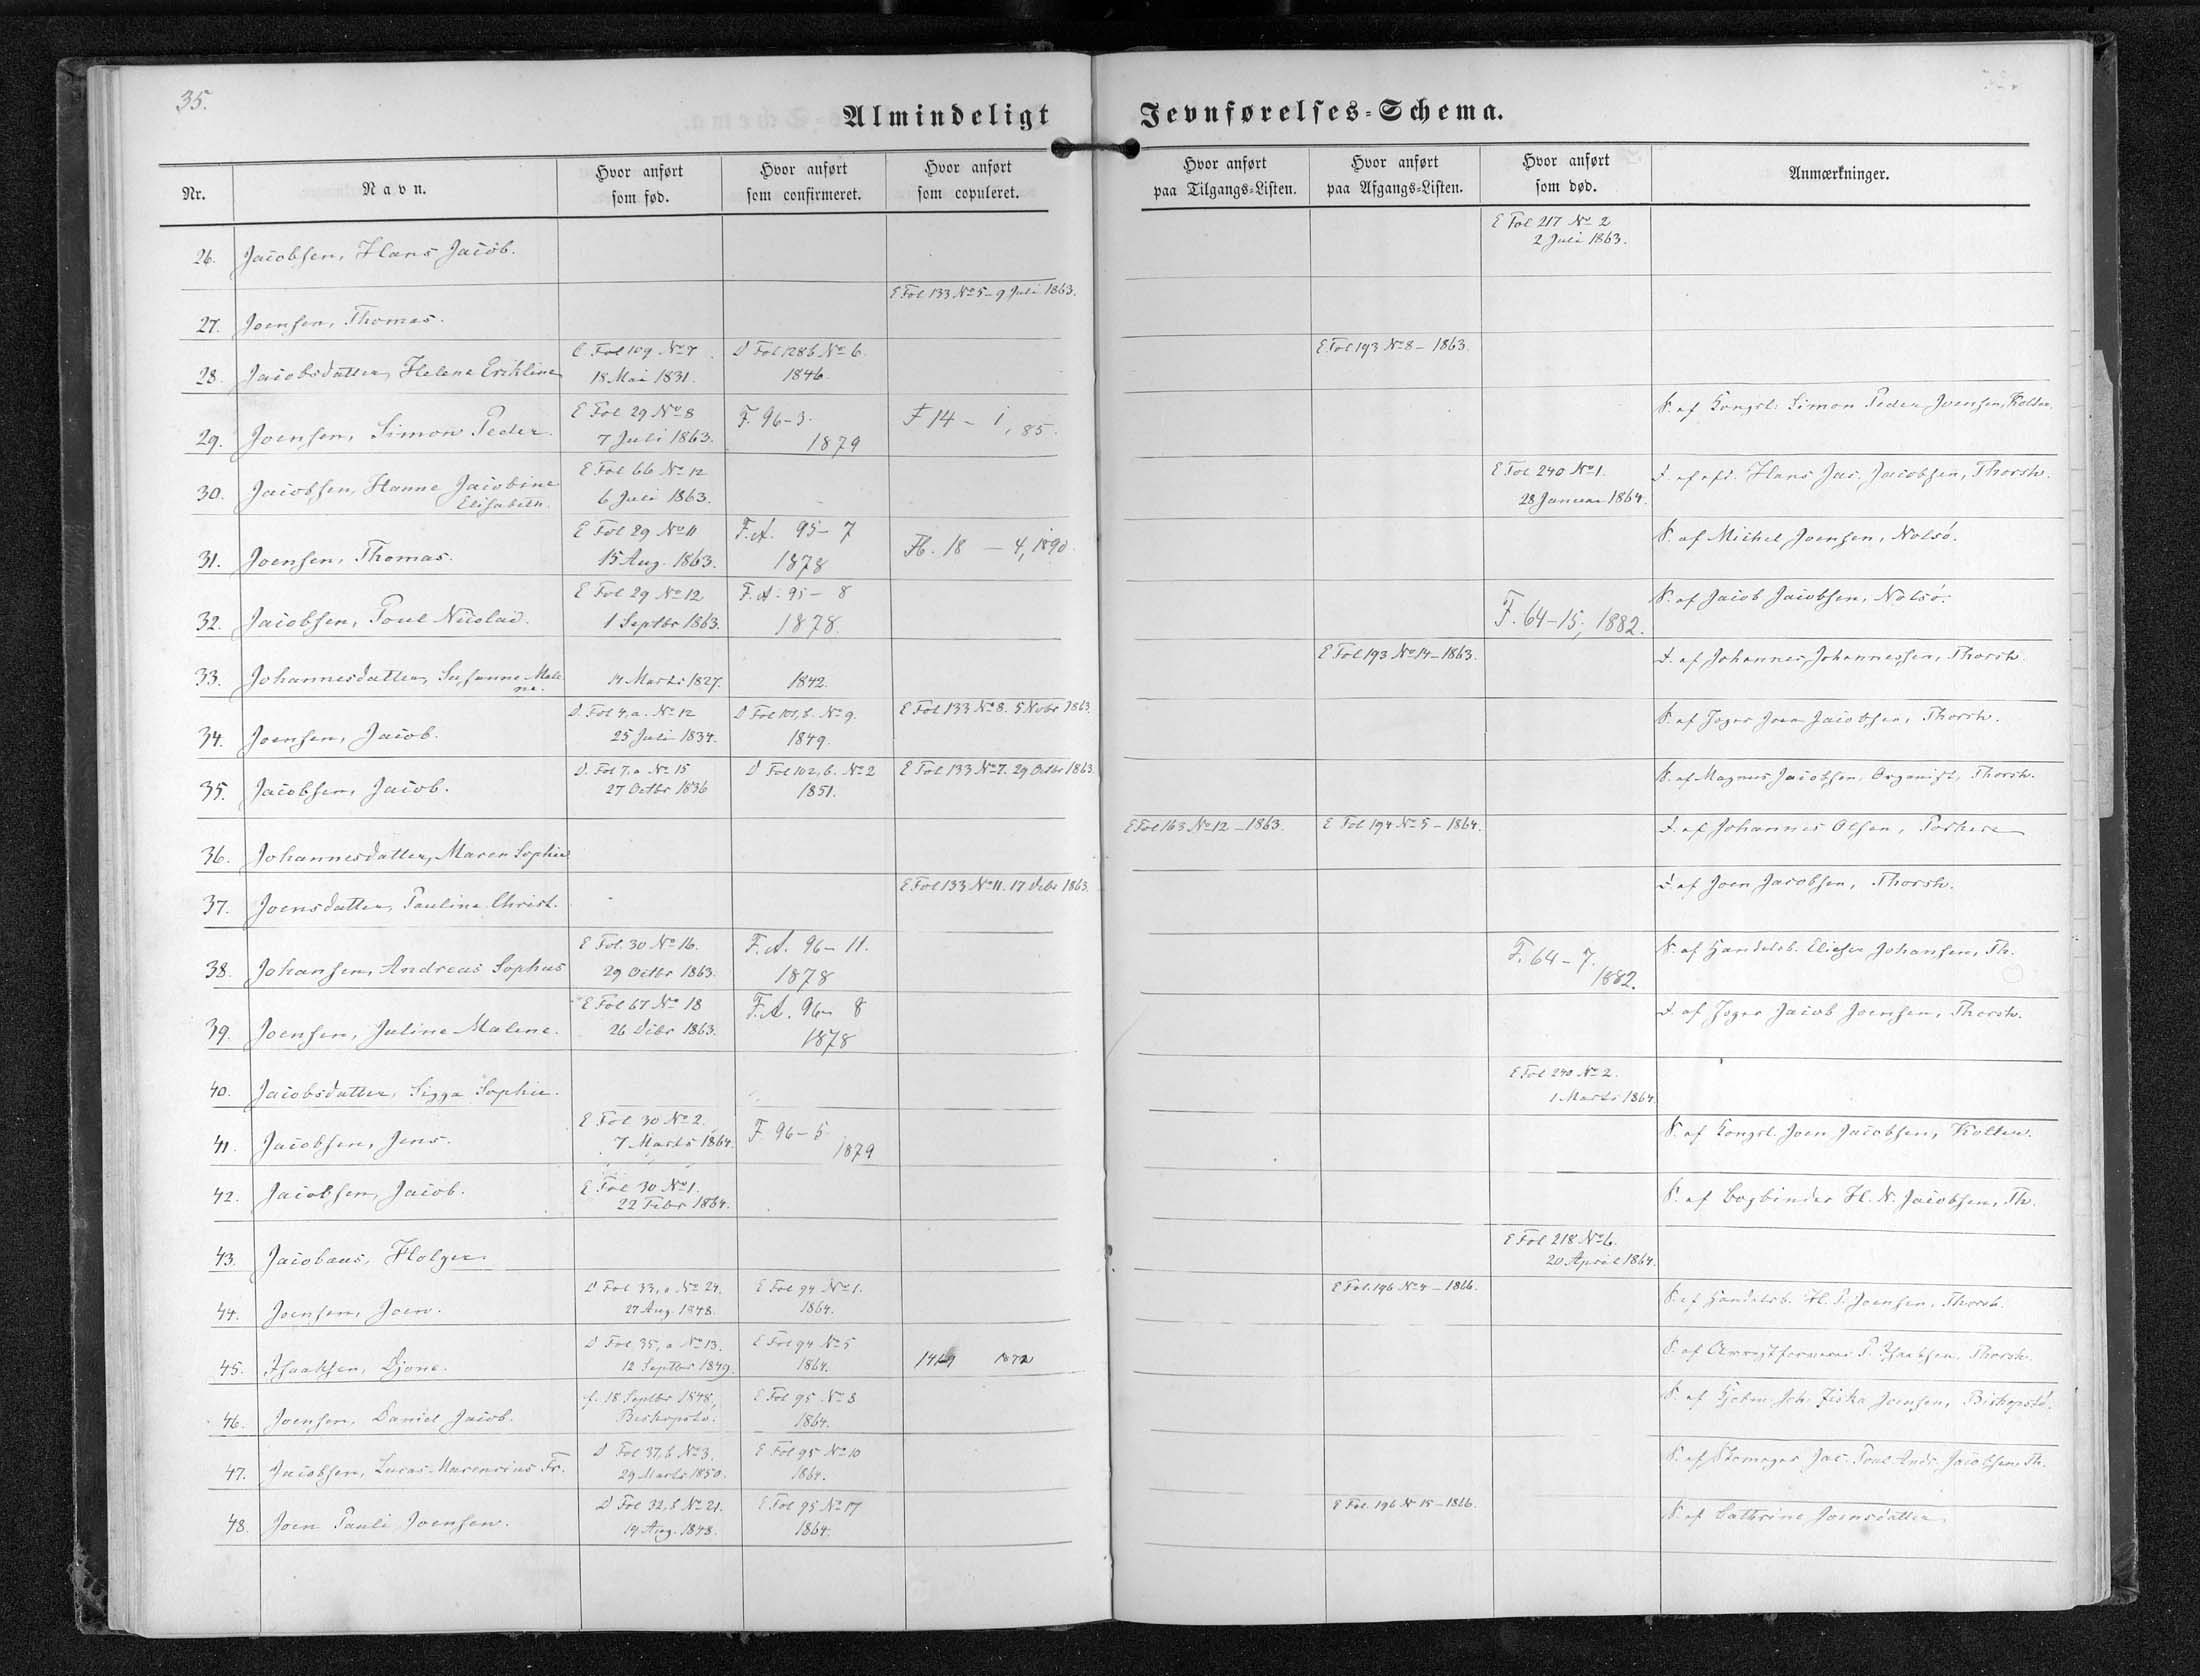 35.
Almindeligt Jevnførelses=Schema.
Nr. Navn. Hvor anført som fød. Hvor anført som confirmeret. Hvor anført som copuleret. Hvor anført paa Tilgangs=Listen. Hvor anført paa Afgangs=Listen. Hvor anført som død. Anmærkninger.
26. Jacobsen, Hans Jacob. E Fol 217 No 2
2 Juli 1863.
27. Joensen, Thomas. E Fol 133 No 5 - 9 Juli 1863.
28. Jacobsdatter, Helene Erikline C Fol 109 No 7 D Fol 128 b No 6. E Fol 193 No 8 - 1863.
18 Mai 1831. 1846.
29. Joensen, Simon Peder. E Fol 29 No 8 F. 96-3. F 14 - 1, 85. S. af Kongsb. Simon Peder Joensen, Kolter.
7 Juli 1863. 1879
30. Jacobsen, Hanne Jacobine E Fol 66 No 12 E Fol 240 No 1. D. af afd. Hans Jac. Jacobsen, Thorsh.
Elisabeth. 6 Juli 1863. 28 Januar 1864.
31. Joensen, Thomas. E Fol 29 No 11 F.A. 95-7 Fb. 18 - 4, 1890. S. af Michel Joensen, Nolsö.
15 Aug. 1863. 1878
32. Jacobsen, Poul Nicolai. E Fol 29 No 12 F.A. 95-8 F. 64-15, 1882. S. af Jacob Jacobsen, Nolsö.
1 Septbr 1863. 1878.
33. Johannesdatter, Susanne Malene. 14 Marts 1827. 1842. E Fol 193 No 14 - 1863. D. af Johannes Johannessen, Thorsh.
34. Joensen, Jacob. D. Fol 4, a. No 12 D Fol 101, b. No 9. E Fol 133 No 8. 5 Novbr 1863. S. af Joen Jacobsen, Thorsh.
25 Juli 1834. 1849.
35. Jacobsen, Jacob. D. Fol 7, a No 15 D Fol 102, b. No 2 E Fol 133 No 7. 29 Octbr 1863. S. af Magnus Jacobsen, Organist, Thorsh.
27 Octbr 1836 1851.
36. Johannesdatter, Maren Sophie E Fol 163 No 12 - 1863. E Fol 194 No 5 - 1864. D. af Johannes Olsen, Porkere
37. Joensdatter, Pauline Christ. E Fol 133 No 11. 17 Debr 1863. D. af Joen Jacobsen, Thorsh.
38. Johansen, Andreas Sophus E Fol. 30 No 16. F.A. 96-11. F. 64-7. S. af Handelsb. Elieser Johansen, Th.
29 Octbr 1863. 1878 1882.
39. Joensen, Juline Malene. E Fol 67 No 18 F.A. 96-8 D. af Jacob Joensen, Thorsh.
26 Debr 1863. 1878
40. Jacobsdatter, Sigga Sophie. E Fol 240 No 2.
1 Marts 1864.
41. Jacobsen, Jens. E Fol 30 No 2. F. 96-5 S. af Kongsb. Joen Jacobsen, Kolter.
7 Marts 1864. 1879
42. Jacobsen, Jacob. E Fol 30 No 1. S. af Bogbinder H. N. Jacobsen, Th.
22 Febr 1864.
43. Jacobæus, Holger. E Fol 218 No 6.
20 April 1864.
44. Joensen, Joen. D Fol 33, a No 24. E Fol 94 No 1. E Fol. 196 No 4 - 1866. S. af Handelsb. H. P. Joensen, Thorsh.
27 Aug. 1848. 1864.
45. Isaaksen, Djone. D Fol 35, a No 13. E Fol 94 No 5 S. af P. Isaaksen, Thorsh.
12 Septbr 1849. 1864.
46. Joensen, Daniel Jacob. f. 18 Septbr 1848, E Fol 95 No 3 S. af Joh. Ziska Joensen, Biskopstö.
Biskopstö. 1864.
47. Jacobsen, Lucas Marenius Fr. D Fol 37, b No 3. E Fol 95 No 10 S. af Skomager Jac. Poul Andr. Jacobsen, Th.
29 Marts 1850. 1864.
48. Joen Pauli Joensen. D Fol 32, b No 21. E Fol 95 No 17 E Fol. 196 N 15 - 1866. S. af Cathrine Joensdatter
14 Aug. 1848. 1864.